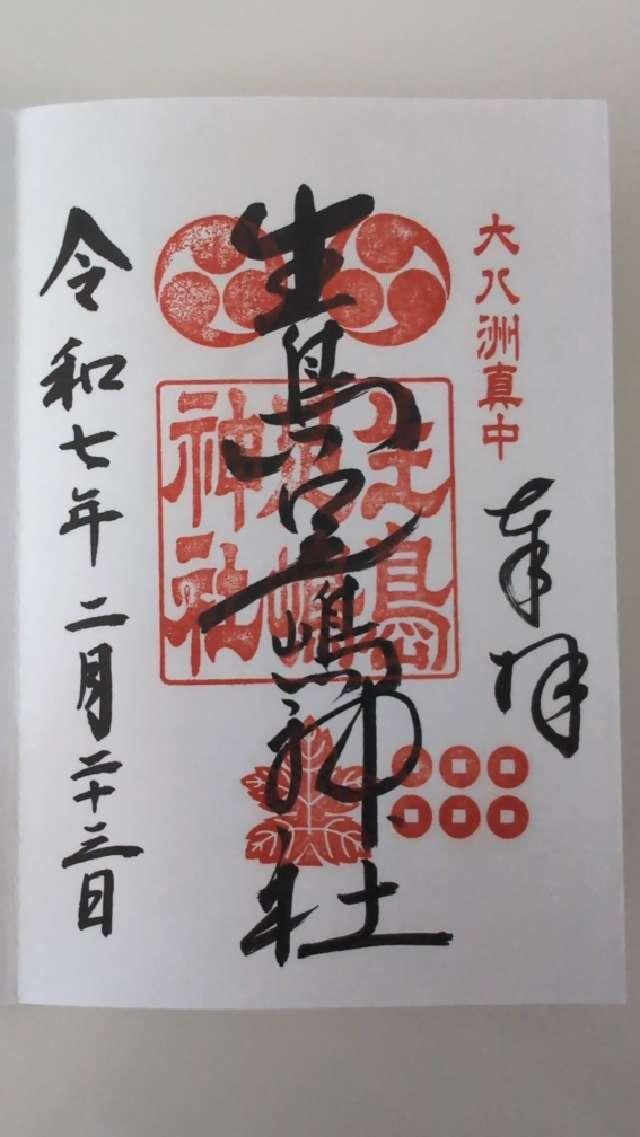 大八洲真中
奉拝
生島足嶋神社
生島
足嶋
神社
令和七年二月二十三日